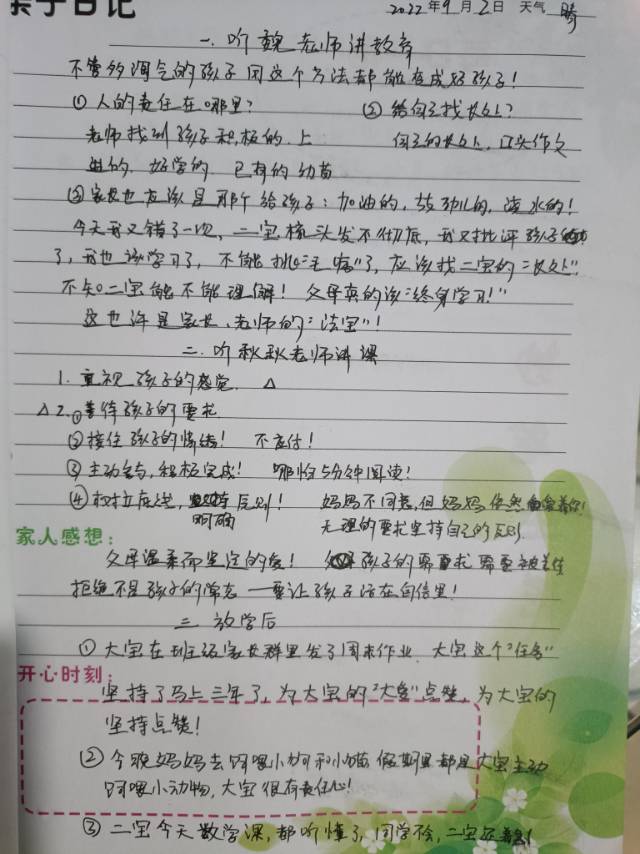 亲子日记 2022年9月2日 天气 晴
一、听魏老师讲教育
不管多调气的孩子用这个方法都能变成好孩子!
①人的责任在哪里? ②给自己找长处?
老师找到孩子积极的、上 自己的长处,口头作文
进的、好学的、已有的幼苗
③家长也应该是那个给孩子:加油的,鼓劲儿的,浇水的!
今天我又错了一次,二宝梳头发不彻底,我又批评孩子
了,我也该学习了,不能挑"毛病"了,应该找二宝的"长处"
不知二宝能不能理解!父母真的该"终身学习!"
这也许是家长、老师的"法宝"!
二、听秋秋老师讲课
1.重视孩子的感觉 △
△2.①善待孩子的要求
②接住孩子的情绪! 不应付!
③主动参与,积极完成! 哪怕5分钟阅读!
④ 原则! 妈妈不同意,但妈妈依然爱着你!
明确 无理的要求坚持自己的原则
家人感想:
父母温柔而坚定的爱! 孩子的需要被看待
拒绝不是孩子的常态 一要让孩子活在自信里!
三、放学后
①大宝在班级家长群里发了周末作业,大宝这个"任务"
开心时刻:
坚持了马上三年了,为大宝的"大爱"点赞,为大宝的
坚持点赞!
②今晚妈妈去饲喂小狗和小猫,假期里都是大宝主动
饲喂小动物,大宝很有责任心!
③二宝今天数学课,都听懂了,同学不会,二宝还着急!